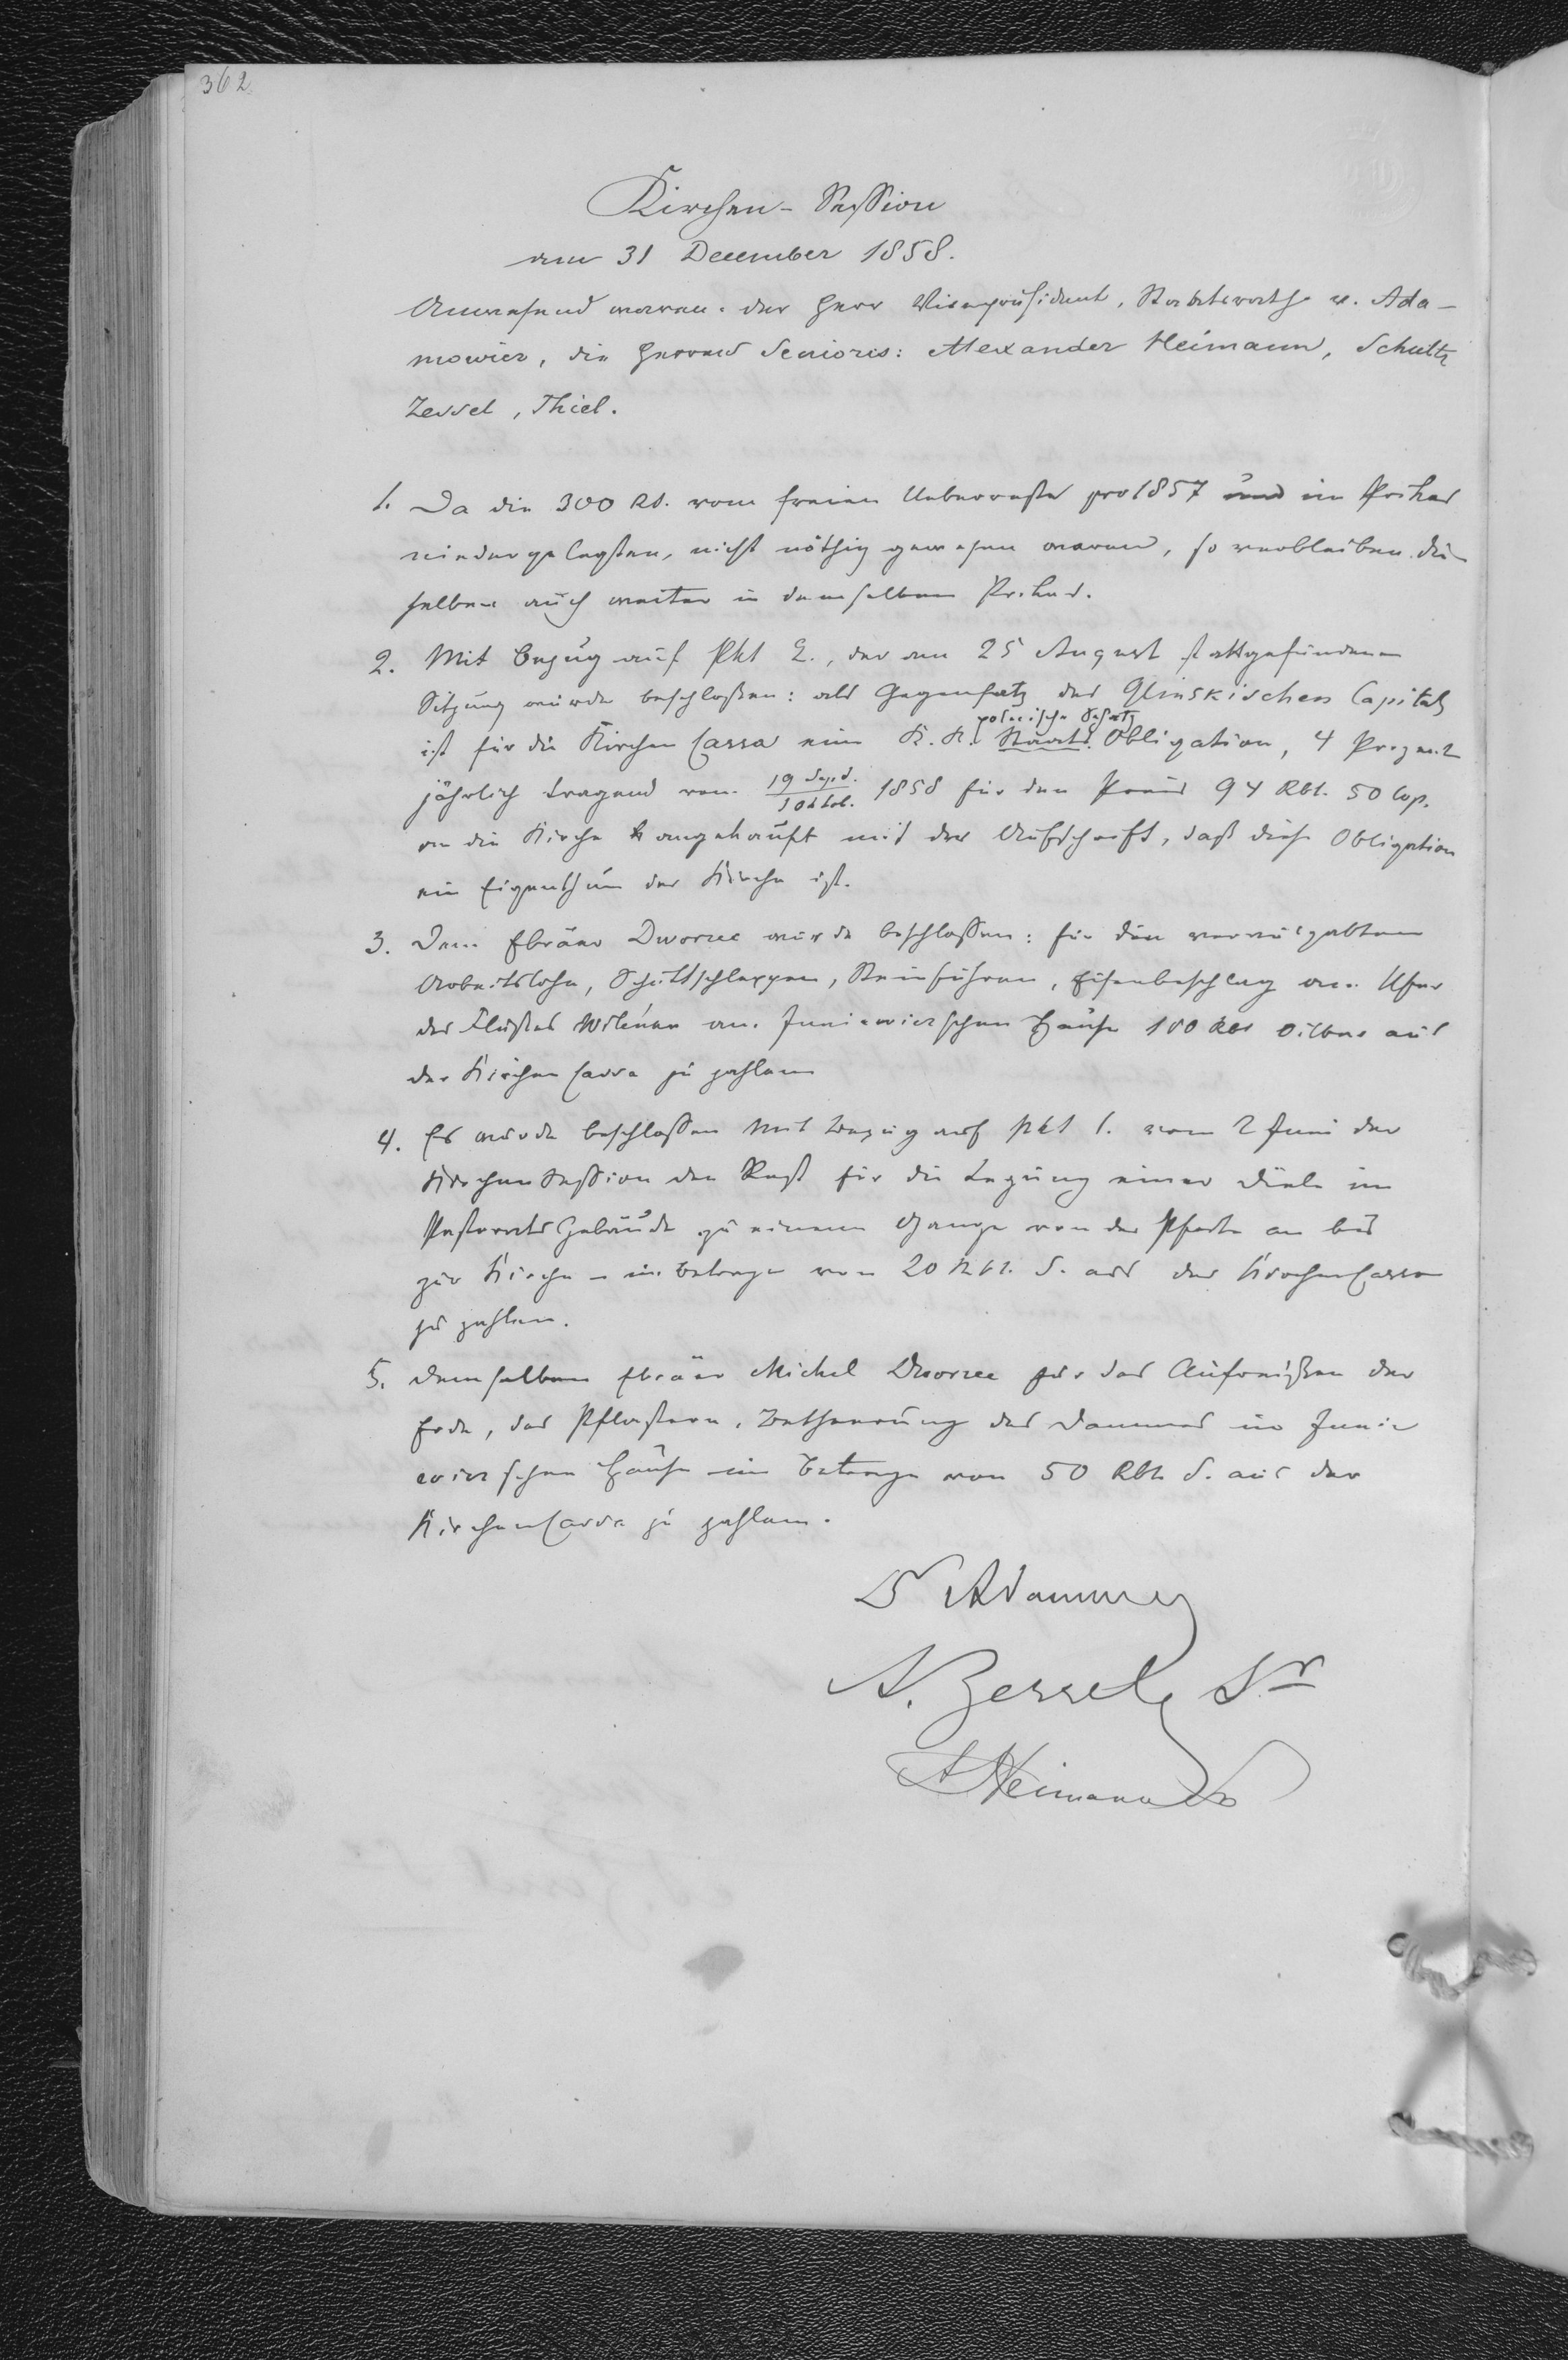 362
Kirchen-Session
am 31 December 1858.
Anwesend waren: der Herr Vicepräsident, Staatsrath v. Ada-
mowicz, die Herren Seniores: Alexander Heimann, Schultz
Zessel, Thiel.
1. Da die 300 Rs. vom freien Ueberreste pro 1857 und im Prikas
niedergelegten, nicht nöthig gewesen waren, so verbleiben die-
selben auch weiter in demselben Prikas.
2. Mit Bezug auf Pkt 2., der am 25 August stattgefundenen
Sitzung wurde beschloßen: als Gegensatz des Glinskischen Capitals
polnische Schatz
ist für die Kirchen Cassa eine K. K. Staats. Obligation, 4 Prozent
jährlich tragend vom 19 Sept. / 1 Oktob. 1858 für den Preis 94 Rbl. 50 Cop.
an die Kirche angekauft mit der Aufschrift, daß diese Obligation
ein Eigenthum der Kirche ist.
3. Dem Ebräer Dworzec wurde beschlossen: für den verausgabten
Arbeitslohn, Schuttschleppen, Steinführen, Eisenbeschlag am Ufer
des Flußes Wilenka am Juniewiczschen Hause 100 Rbl Silber aus
der Kirchen Cassa zu zahlen
4. Es wurde beschlossen mit Bezug auf Pkt 1. vom 2 Juni der
Kirchen Session den Rest für die Legung einer Diele im
Pastorats Gebäude zu einem Gange von der Pforte an bis
zur Kirche – im Betrage von 20 Rbl. S. aus der Kirchen Cassa
zu zahlen.
5. Demselben Ebräer Michel Dworzec für das Aufreißen der
Erde, das Pflastern, des Dammes im Junie
wiczschen Hause im Betrage von 50 Rbl. S. aus der
Kirchen Cassa zu zahlen.
Dr Adamowicz
A. Zessel Sr
A Heimann Sr